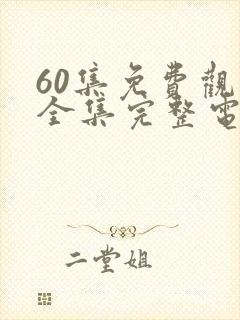 60集免費觀
全集完整電
二堂姐